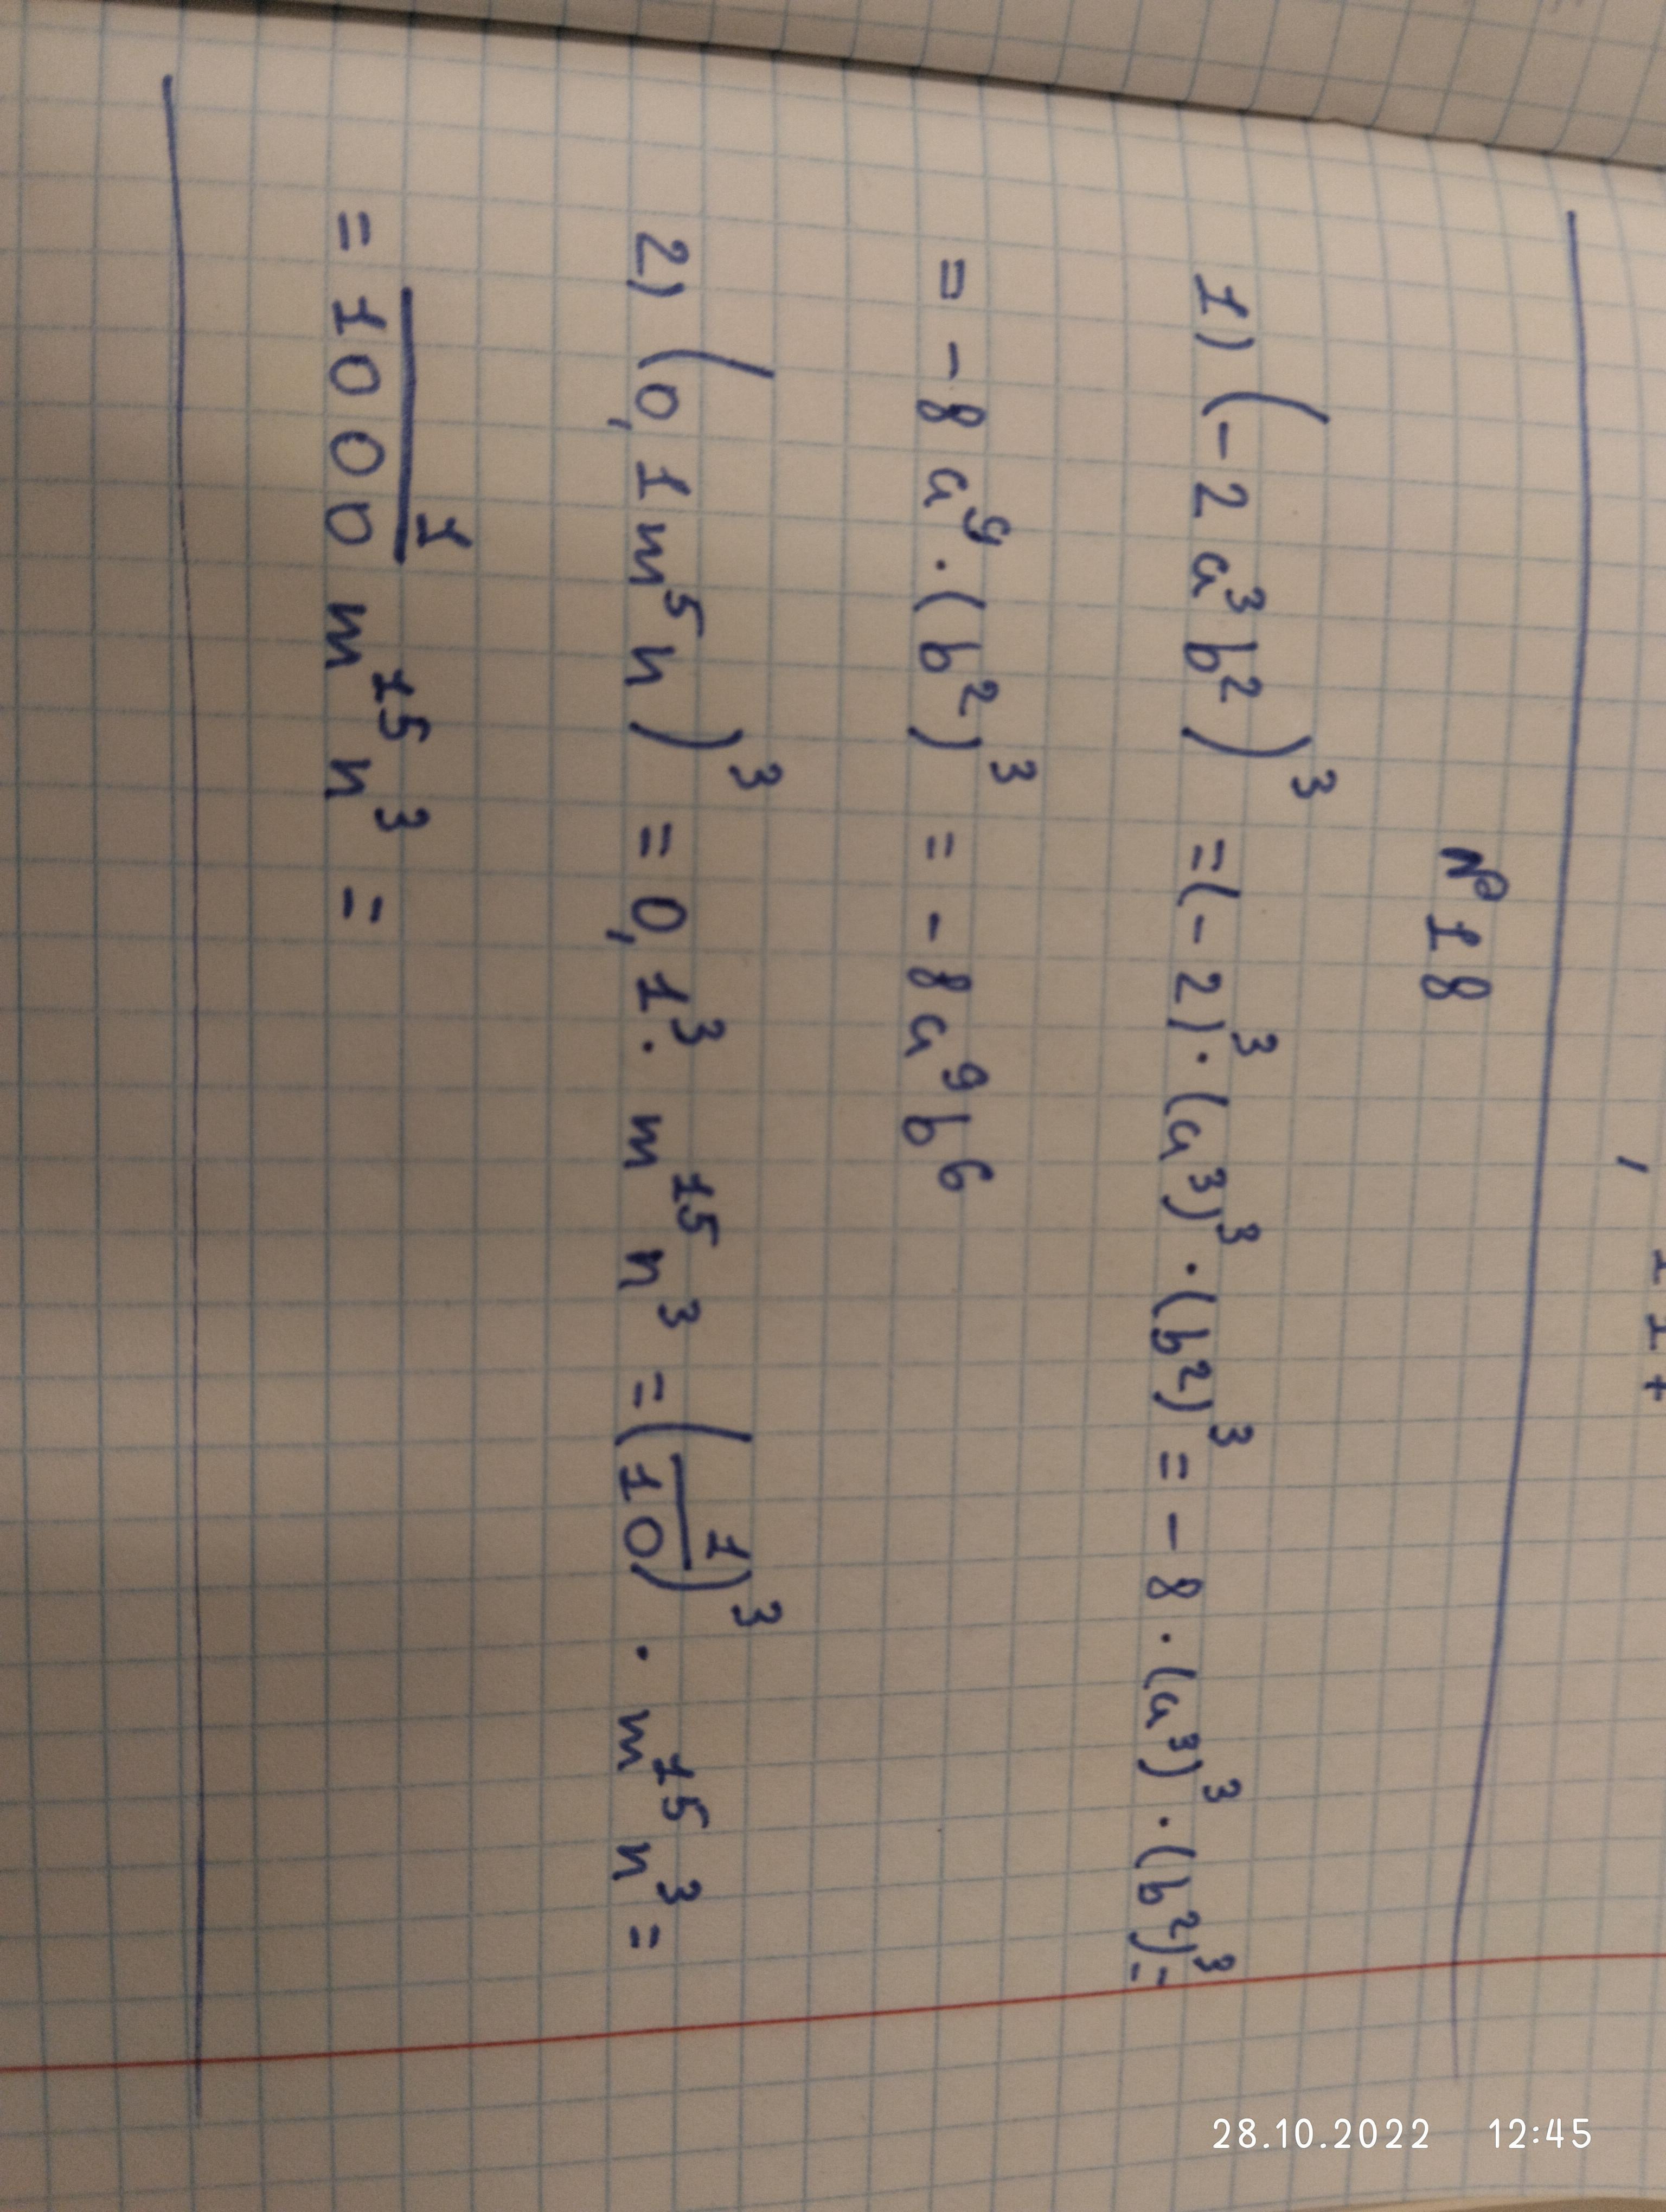 №18
1) (-2a³b²)³ =(-2)³·(a³)³·(b²)³ = -8·(a³)³·(b²)³=
= -8a⁹·(b²)³ = -8a⁹b⁶
2) (0,1m⁵n)³ = 0,1³· m¹⁵n³ =(1/10)³ · m¹⁵n³=
= 1/1000 m¹⁵n³ =
28.10.2022 12:45